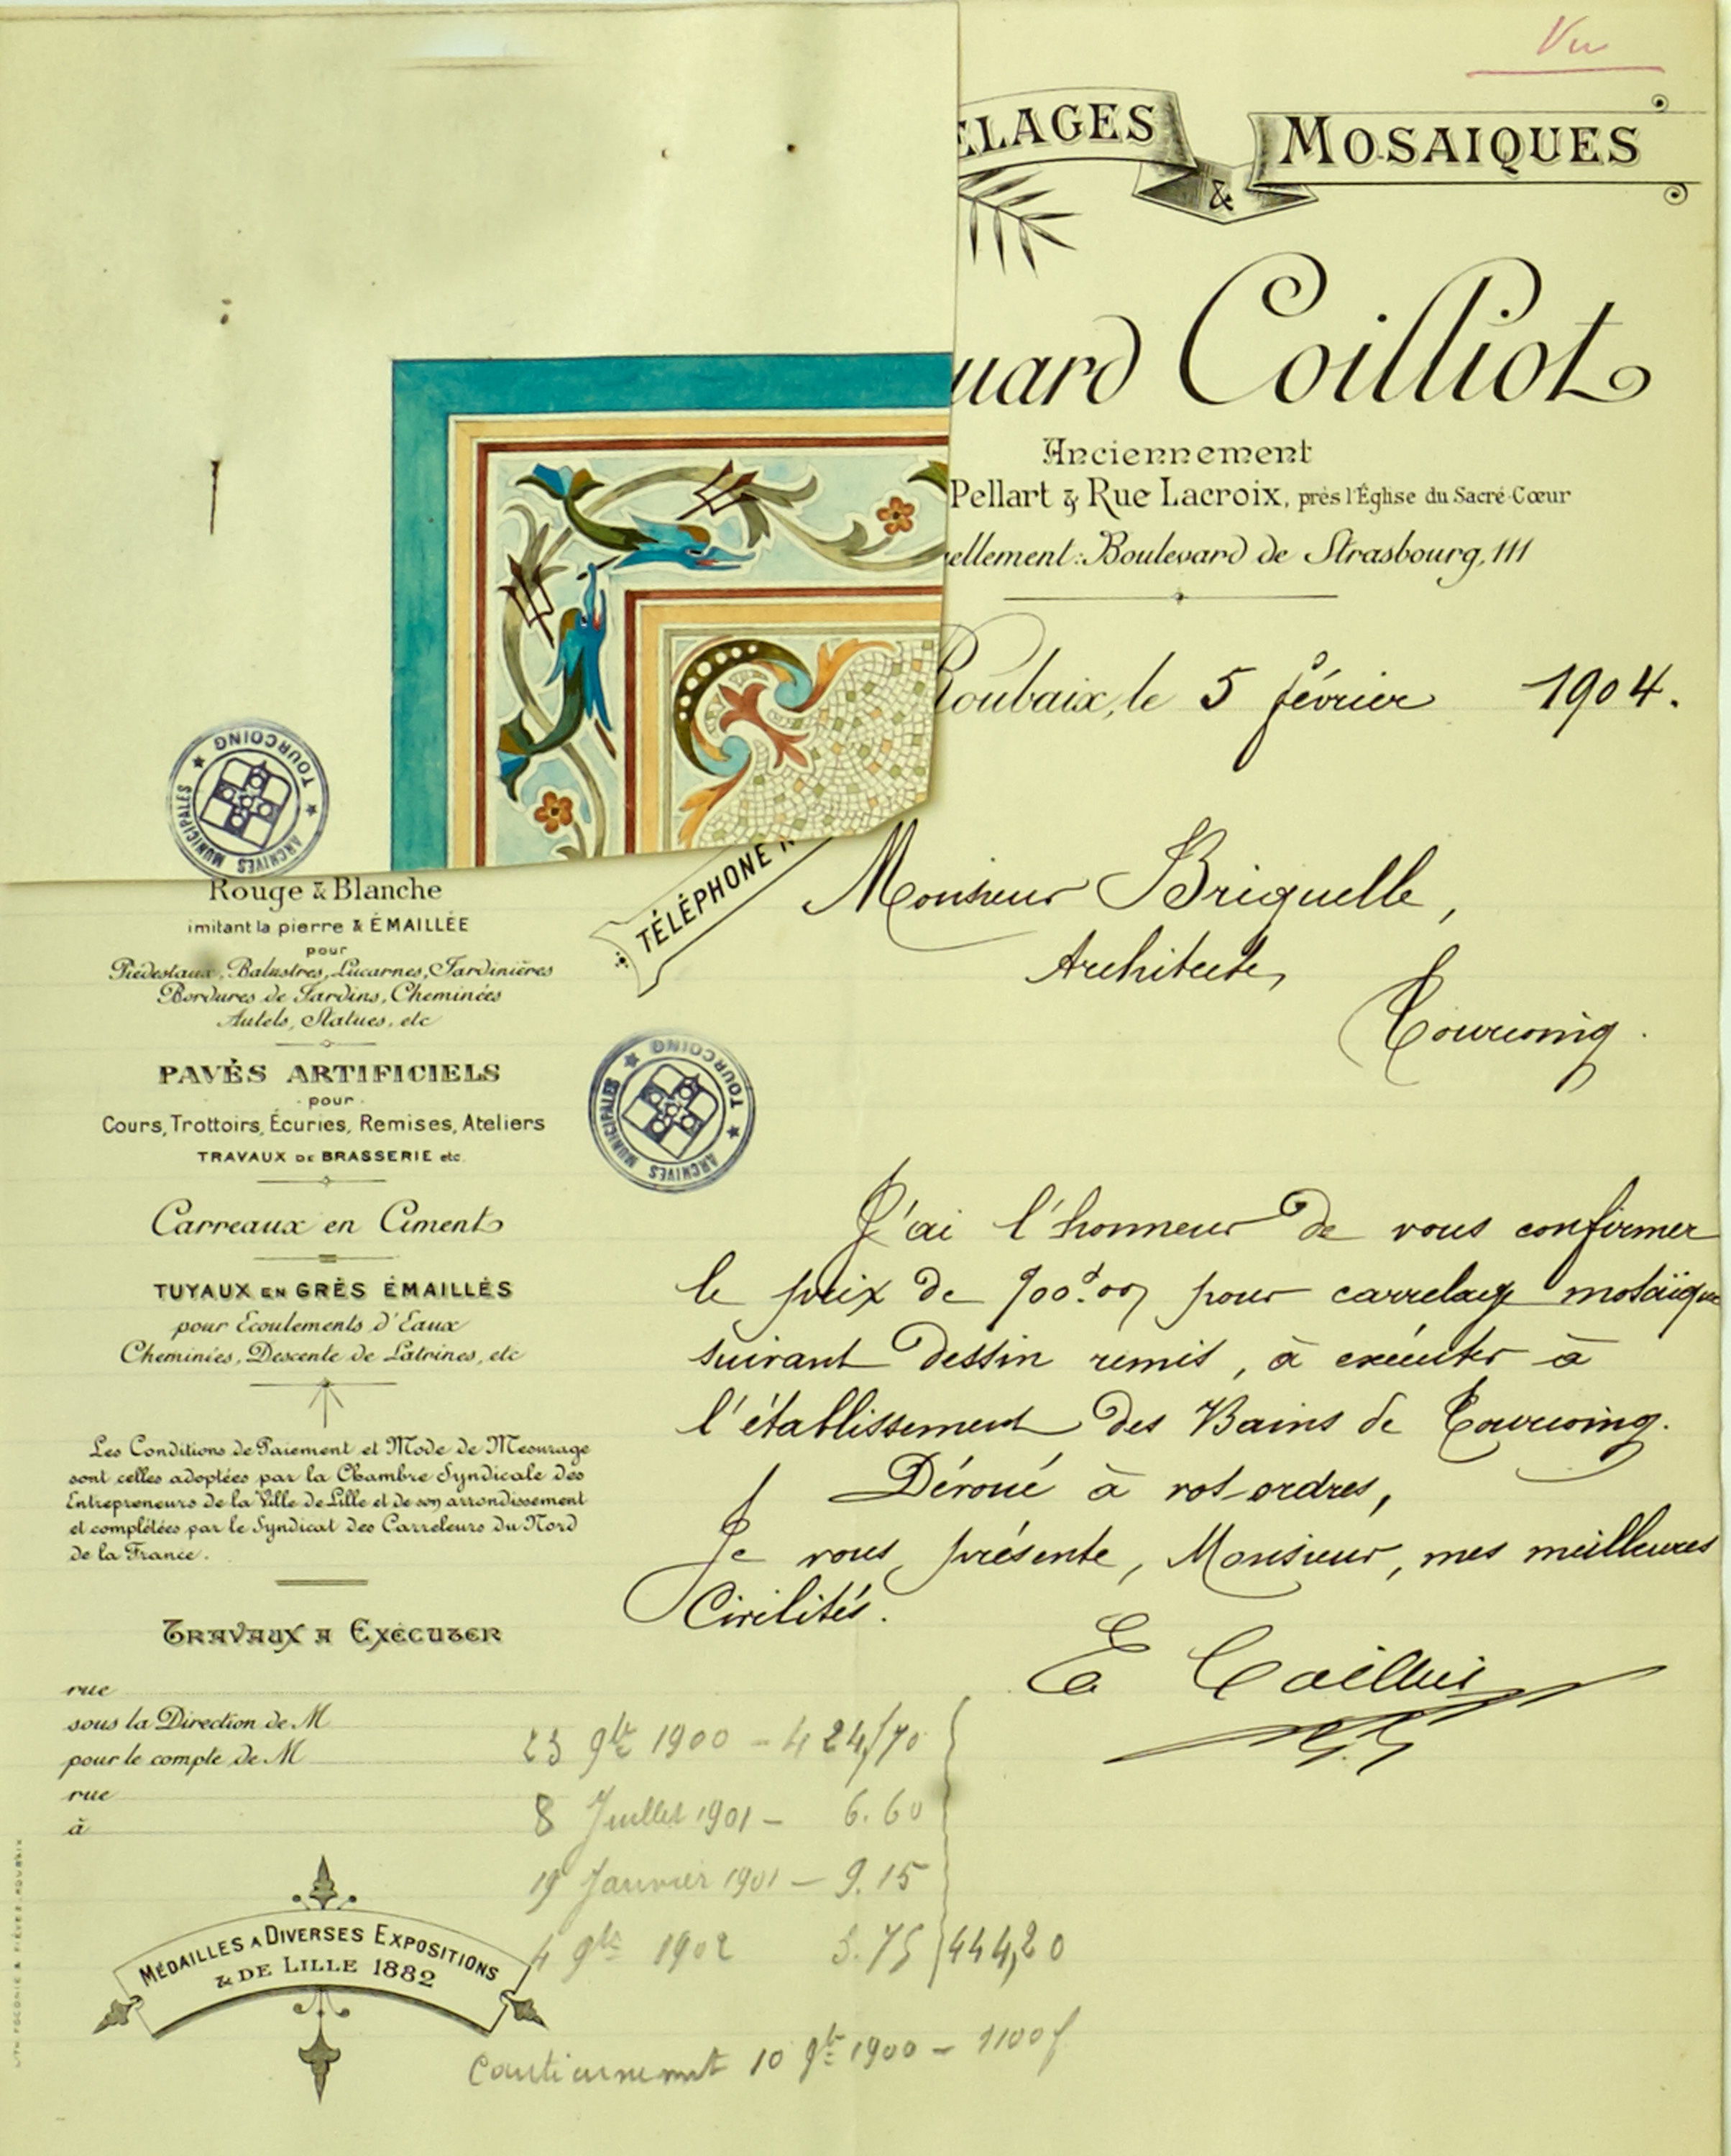 Vu
ELAGES & MOSAIQUES
uard Coilliot
Anciennement
Pellart & Rue Lacroix, près l'Église du Sacré-Cœur
ellement: Boulevard de Strasbourg, 111
Roubaix, le 5 février 1904.
ARCHIVES MUNICIPALES ★ TOURCOING ★
Rouge & Blanche
imitant la pierre & ÉMAILLÉE
pour
Piédestaux, Balustres, Lucarnes, Jardinières
Bordures de Jardins, Cheminées
Autels, Statues, etc
PAVÉS ARTIFICIELS
pour
Cours, Trottoirs, Écuries, Remises, Ateliers
TRAVAUX DE BRASSERIE etc.
Carreaux en Ciment
TUYAUX EN GRÈS ÉMAILLÉS
pour Ecoulements d'Eaux
Cheminées, Descente de Latrines, etc
Les Conditions de Paiement et Mode de Mesurage
sont celles adoptées par la Chambre Syndicale des
Entrepreneurs de la Ville de Lille et de son arrondissement
et complétées par le Syndicat des Carreleurs du Nord
de la France.
TRAVAUX A EXÉCUTER
rue
sous la Direction de M
pour le compte de M
rue
à
MÉDAILLES A DIVERSES EXPOSITIONS
& DE LILLE 1882
TÉLÉPHONE
Monsieur Briquelle,
Architecte,
Tourcoing.
ARCHIVES MUNICIPALES ★ TOURCOING ★
J'ai l'honneur de vous confirmer
le prix de pour carrelage mosaïque
suivant dessin remis, à exécuter à
l'établissement des Bains de Tourcoing.
Dévoué à vos ordres,
Je vous présente, Monsieur, mes meilleures
Civilités.
E Coilliot
23 9bre 1900 - 424,70
8 Juillet 1901 - 6.60
19 Janvier 1901 - 9.15
4 9bre 1902 3.75 444,20
Cautionnement 10 9bre 1900 - 1100f